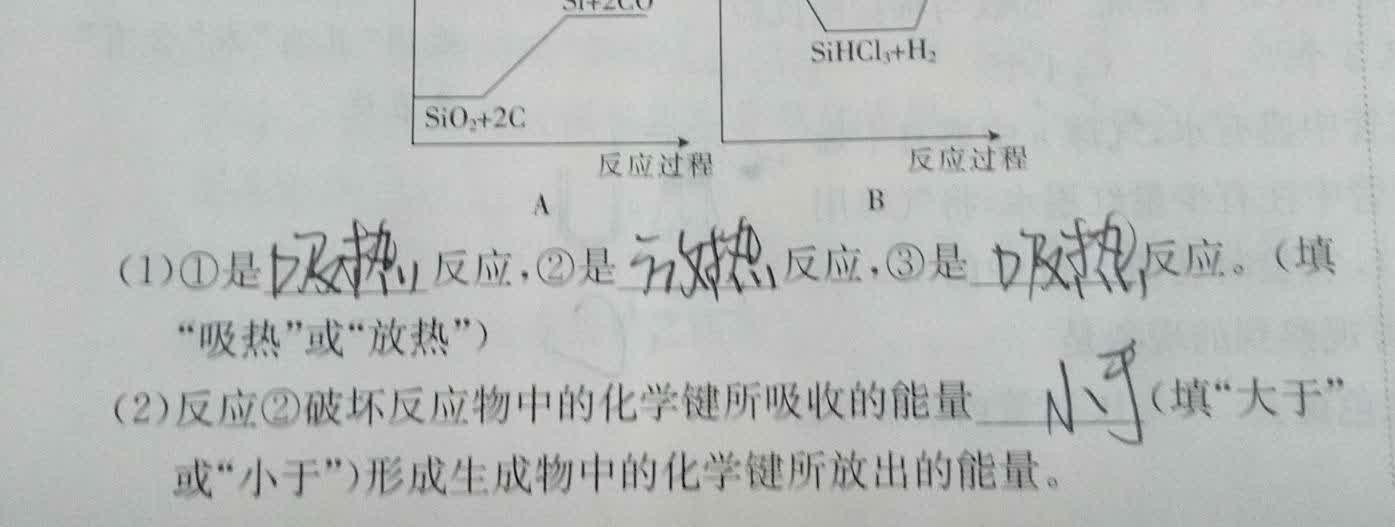 Si+2CO
SiHCl₃+H₂
SiO₂+2C
反应过程 反应过程
A B
(1)①是吸热反应,②是放热反应,③是吸热反应。(填
“吸热”或“放热”)
(2)反应②破坏反应物中的化学键所吸收的能量小于(填“大于”
或“小于”)形成生成物中的化学键所放出的能量。